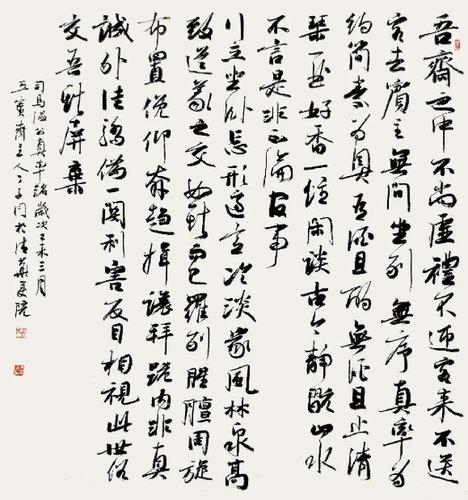 吾齋之中不尚虛禮不迎客来不送
客去賓主無間坐列無序真率为
约簡素为具有酒且酌無酒且止清
琴一曲好香一炷閑談古今静玩山水
不言是非不論官事
行立坐卧忘形適意冷淡家風林泉高
致道義之交如斯而已羅列腥膻周旋
布置俛仰奔趋揖讓拜跪内非真
誠外徒矯偽一関利害反目相視此世俗
交吾斯屏棄
司馬温公真率銘歲次乙未三月
齋主人於清華美院